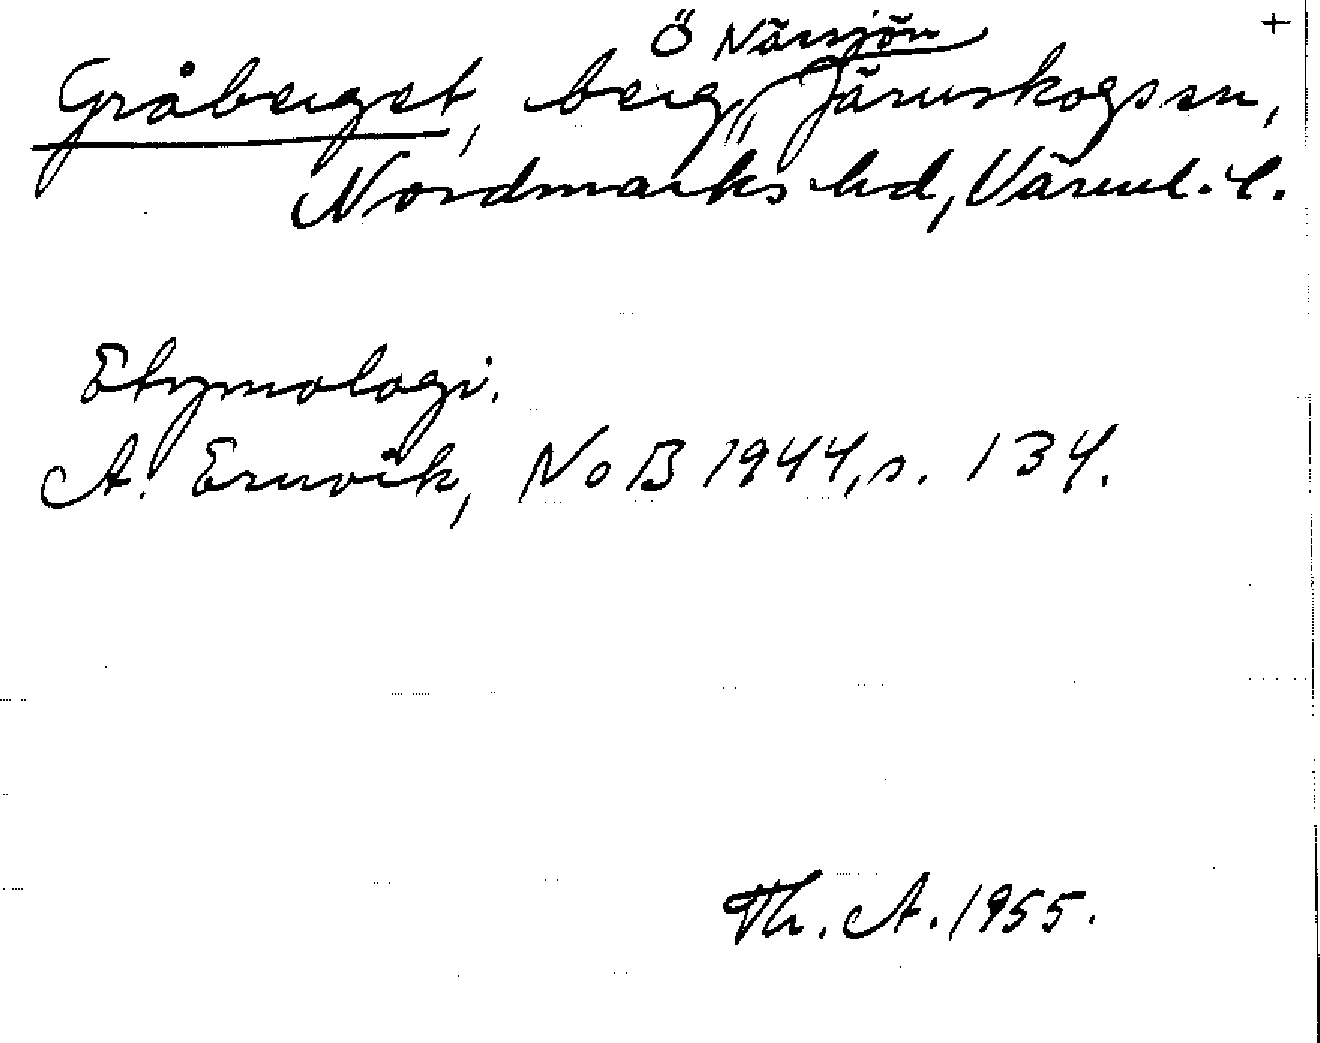 +
Ö Närsjön
Gråberget, berg, Järnskogs sn,
Nordmarks hd, Värml. l.
Etymologi.
A. Ernvik, NoB 1944, s. 134.
Th. A. 1955.